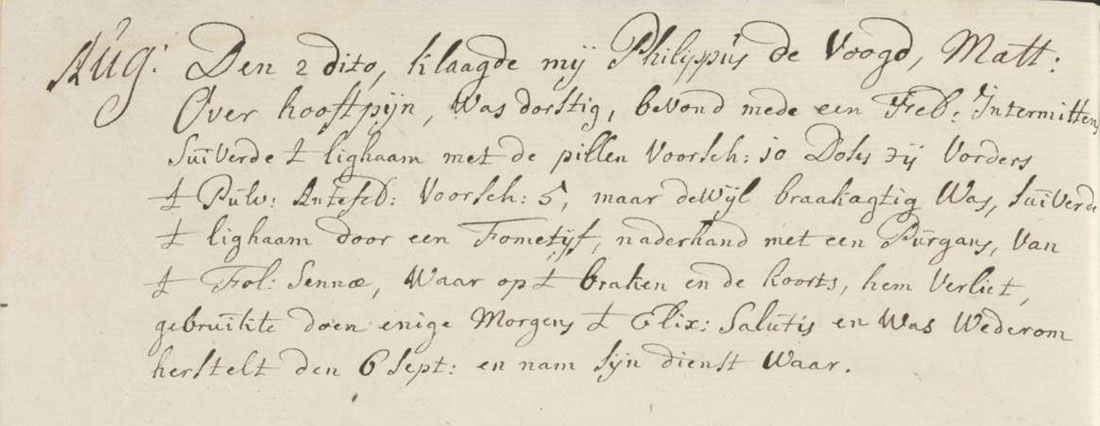 Aug: Den 2 dito, klaagde mij Philippus de Voogd, Matt:
Over hooftpijn, Was dorstig, bevond mede een Feb: Intermittens
Suiverde t lighaam met de pillen Voorsch: 10 Dosis zij Vorders
t Pulv: Antefeb: Voorsch: 5, maar dewijl braakagtig Was, Suiverde
t lighaam door een Fometijf, naderhand met een Purgans, Van
t Fol: Sennæ, Waar op t braken en de koorts, hem Verliet,
gebruikte doen enige Morgens t Elix: Salutis en Was Wederom
herstelt den 6 Sept: en nam sijn dienst Waar.